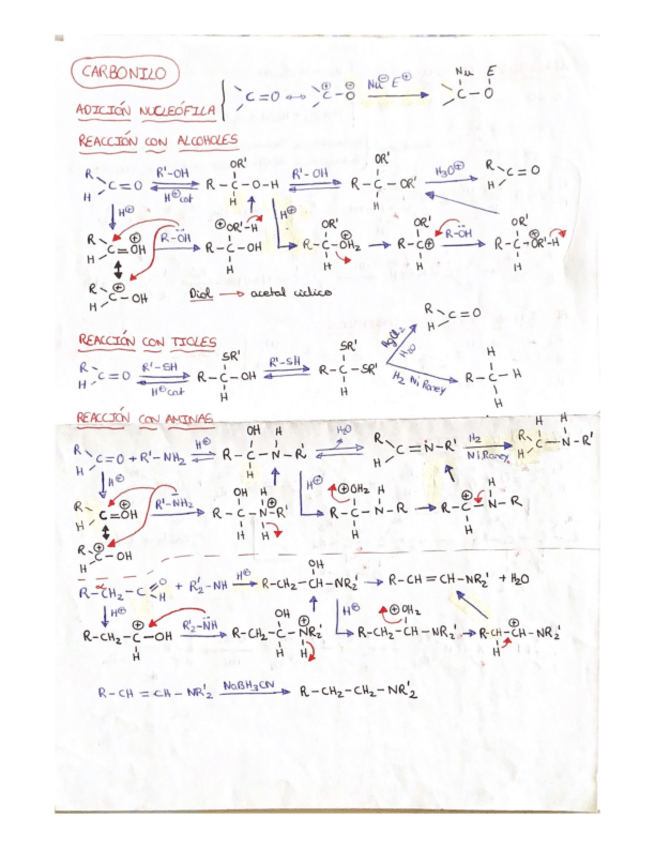 CARBONILO
ADICIÓN NUCLEÓFILA { C=O ↔ C⊕-O⊖ Nu⊖ E⊕ → Nu E C-O
REACCIÓN CON ALCOHOLES
R H C=O R'-OH H⊕cat R-C-O-H OR' H R'-OH R-C-OR' OR' H H3O⊕ R H C=O
H⊕ H⊕
R H C=OH⊕ R-ÖH R-C-OH ⊕OR'-H H R-C-OH2⊕ OR' H R-C⊕ OR' H R-ÖH R-C-OR'-H⊕ OR' H
R H C⊕-OH Diol → acetal cíclico
REACCIÓN CON TIOLES
R H C=O R'-SH H⊕cat R-C-OH SR' H R'-SH R-C-SR' SR' H HgCl2 H2O R H C=O
H2 Ni Raney R-C-H H H
REACCIÓN CON AMINAS
R H C=O + R'-NH2 H⊕ R-C-N-R' OH H H H2O R H C=N-R' H2 Ni Raney R-C-N-R' H H H
H⊕ H⊕
R H C=OH⊕ R'-NH2 R-C-N⊕R' OH H H H R-C-N-R ⊕OH2 H H R-C-N-R ⊕ H H
R H C⊕-OH
R-CH2-C=O H α + R'2-NH H⊕ R-CH2-CH-NR2' OH → R-CH=CH-NR2' + H2O
H⊕ H⊕
R-CH2-C-OH ⊕ H R'2-NH R-CH2-C-NR2' OH ⊕ H H R-CH2-CH-NR2' ⊕OH2 → R-CH-CH-NR2' ⊕ H
R-CH=CH-NR'2 NaBH3CN → R-CH2-CH2-NR'2